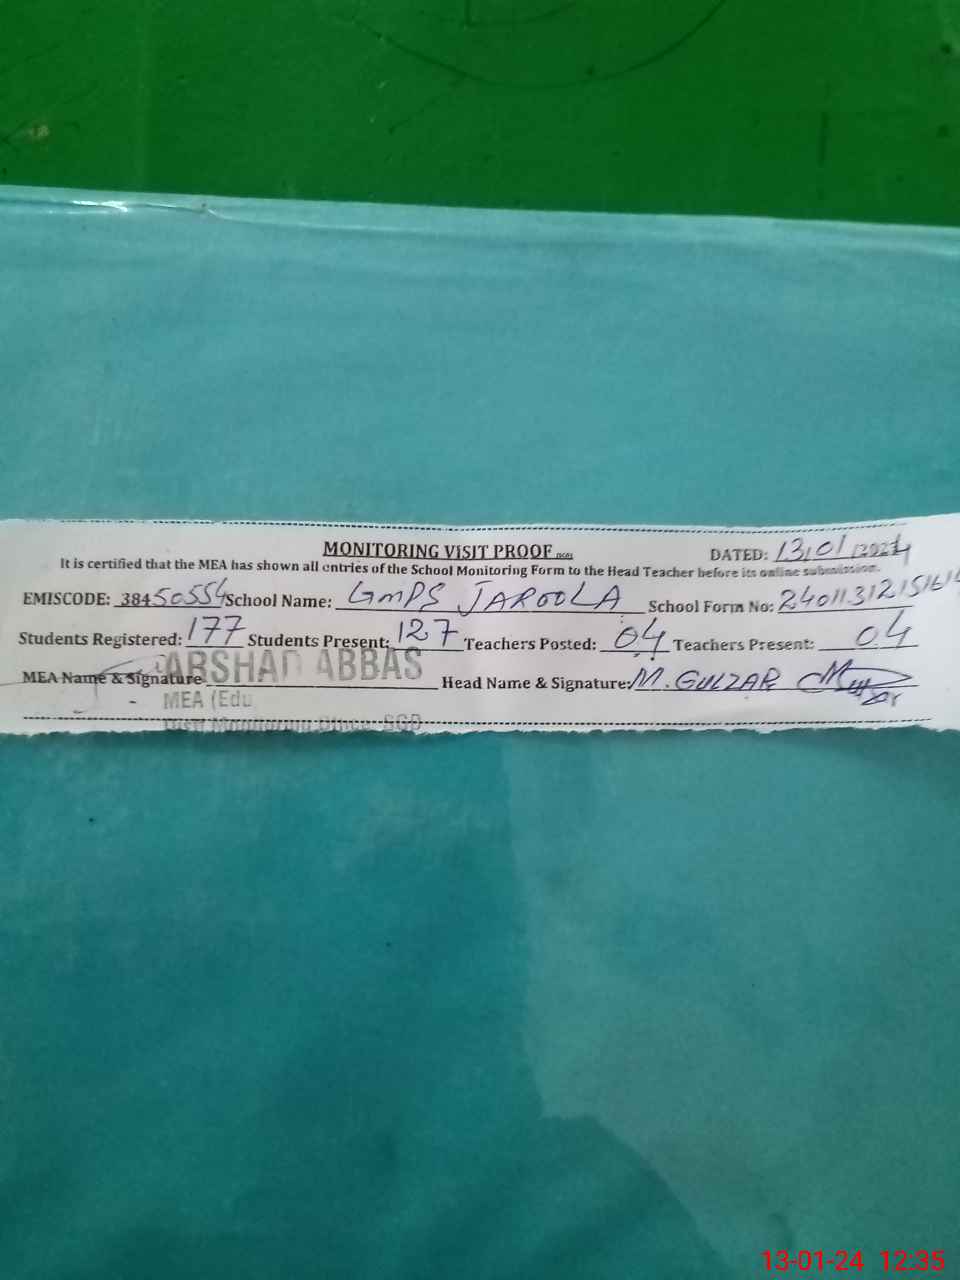 MONITORING VISIT PROOF
DATED: 13/01/2024
It is certified that the MEA has shown all entries of the School Monitoring Form to the Head Teacher before its online submission.
EMISCODE: 38450554 School Name: GMPS JAROOLA School Form No:
Students Registered: 177 Students Present: 127 Teachers Posted: 04 Teachers Present: 04
MEA Name & Signature ARSHAD ABBAS Head Name & Signature: M. GULZAR
MEA (Edu
Distt Monitoring Office SGD
13-01-24 12:35